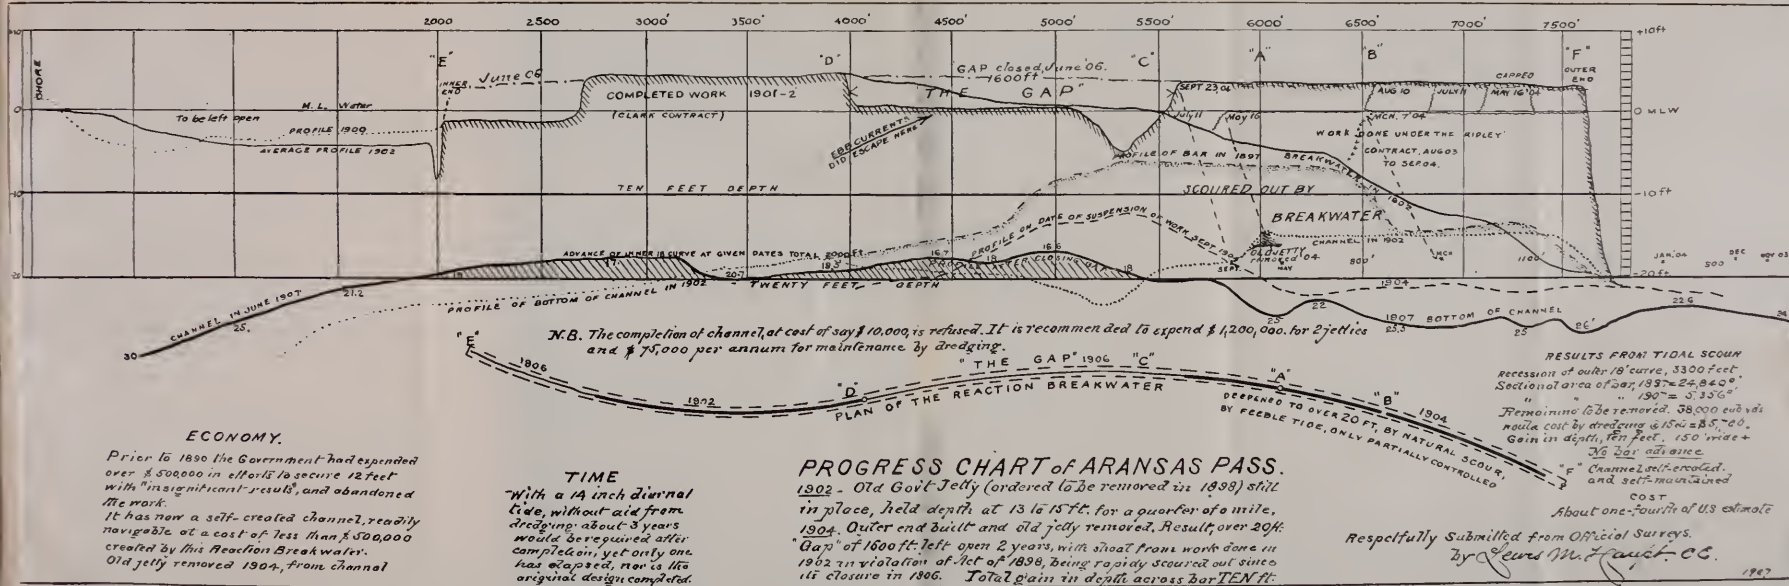 2000 2500 3000' 3500' 4000' 4500' 5000' 5500' 6000' 6500' 7000' 7500'
+10ft
SHORE
"E"
INNER END
June 06
"D"
GAP closed, June '06.
1600ft
"C"
"A"
"B"
"F"
OUTER END
COMPLETED WORK 1901-2
(CLARK CONTRACT)
THE GAP"
SEPT 23, 04
AUG 10
JULY 11
CAPPED
MAY 16 '04
M.L. Water
0
0 MLW
To be left open
PROFILE 1900
AVERAGE PROFILE 1902
EBB CURRENTS
DID ESCAPE HERE
July 11
May 16
MCH. 7 '04
WORK DONE UNDER THE RIPLEY
CONTRACT, AUG 03
TO SEP 04.
PROFILE OF BAR IN 1897
BREAKWATER IN 1902
TEN FEET DEPTH
-10ft
SCOURED OUT BY
BREAKWATER
PROFILE ON DATE OF SUSPENSION OF WORK SEPT.
CHANNEL IN 1902
OLD JETTY
removed '04
ADVANCE OF INNER 18 CURVE AT GIVEN DATES TOTAL 2000 ft.
17
20.7
18.5
16.7
18
16.6
18
SEPT.
MAY
800'
MCH
1100'
JAN. '04
500
DEC
NOV 03
-20ft
TWENTY FEET DEPTH
PROFILE OF BOTTOM OF CHANNEL IN 1902
CHANNEL IN JUNE 1907
30
25.
21.2
1904
25
22
1907 BOTTOM OF CHANNEL
25.3
25
26'
22.6
N.B. The completion of channel, at cost of say $10,000, is refused. It is recommended to expend $1,200,000. for 2 jetties
and $75,000 per annum for maintenance by dredging.
"E"
1906
1902
"D"
"THE GAP" 1906 "C"
PLAN OF THE REACTION BREAKWATER
"A"
"B"
1904
"F"
DEEPENED TO OVER 20 FT, BY NATURAL SCOUR,
BY FEEBLE TIDE, ONLY PARTIALLY CONTROLLED
RESULTS FROM TIDAL SCOUR
Recession of outer 18' curve, 3300 feet
Sectional area of bar, 1897 = 24,840
Remaining to be removed. 38,000 cub yds
Gain in depth, ten feet. 150' wide +
No bar advance
Channel self-created.
and self-maintained
COST
About one-fourth of U.S estimate
ECONOMY.
Prior to 1890 the Government had expended
over $500,000 in efforts to secure 12 feet
with "insignificant results", and abandoned
the work.
It has now a self-created channel, readily
navigable at a cost of less than $500,000
created by this Reaction Breakwater.
Old jetty removed 1904, from channel
TIME
With a 14 inch diurnal
tide, without aid from
dredging about 3 years
would be required after
completion, yet only one
has elapsed, nor is the
original design completed.
PROGRESS CHART of ARANSAS PASS.
1902 - Old Gov't Jetty (ordered to be removed in 1898) still
in place, held depth at 13 to 15 ft. for a quarter of a mile.
1904. Outer end built and old jetty removed. Result, over 20 ft.
"Gap" of 1600 ft. left open 2 years, with shoal from work done in
1902 in violation of Act of 1898, being rapidly scoured out since
its closure in 1906. Total gain in depth across bar TEN ft.
Respectfully Submitted from Official Surveys.
by Lewis M. Haupt C.E.
1907